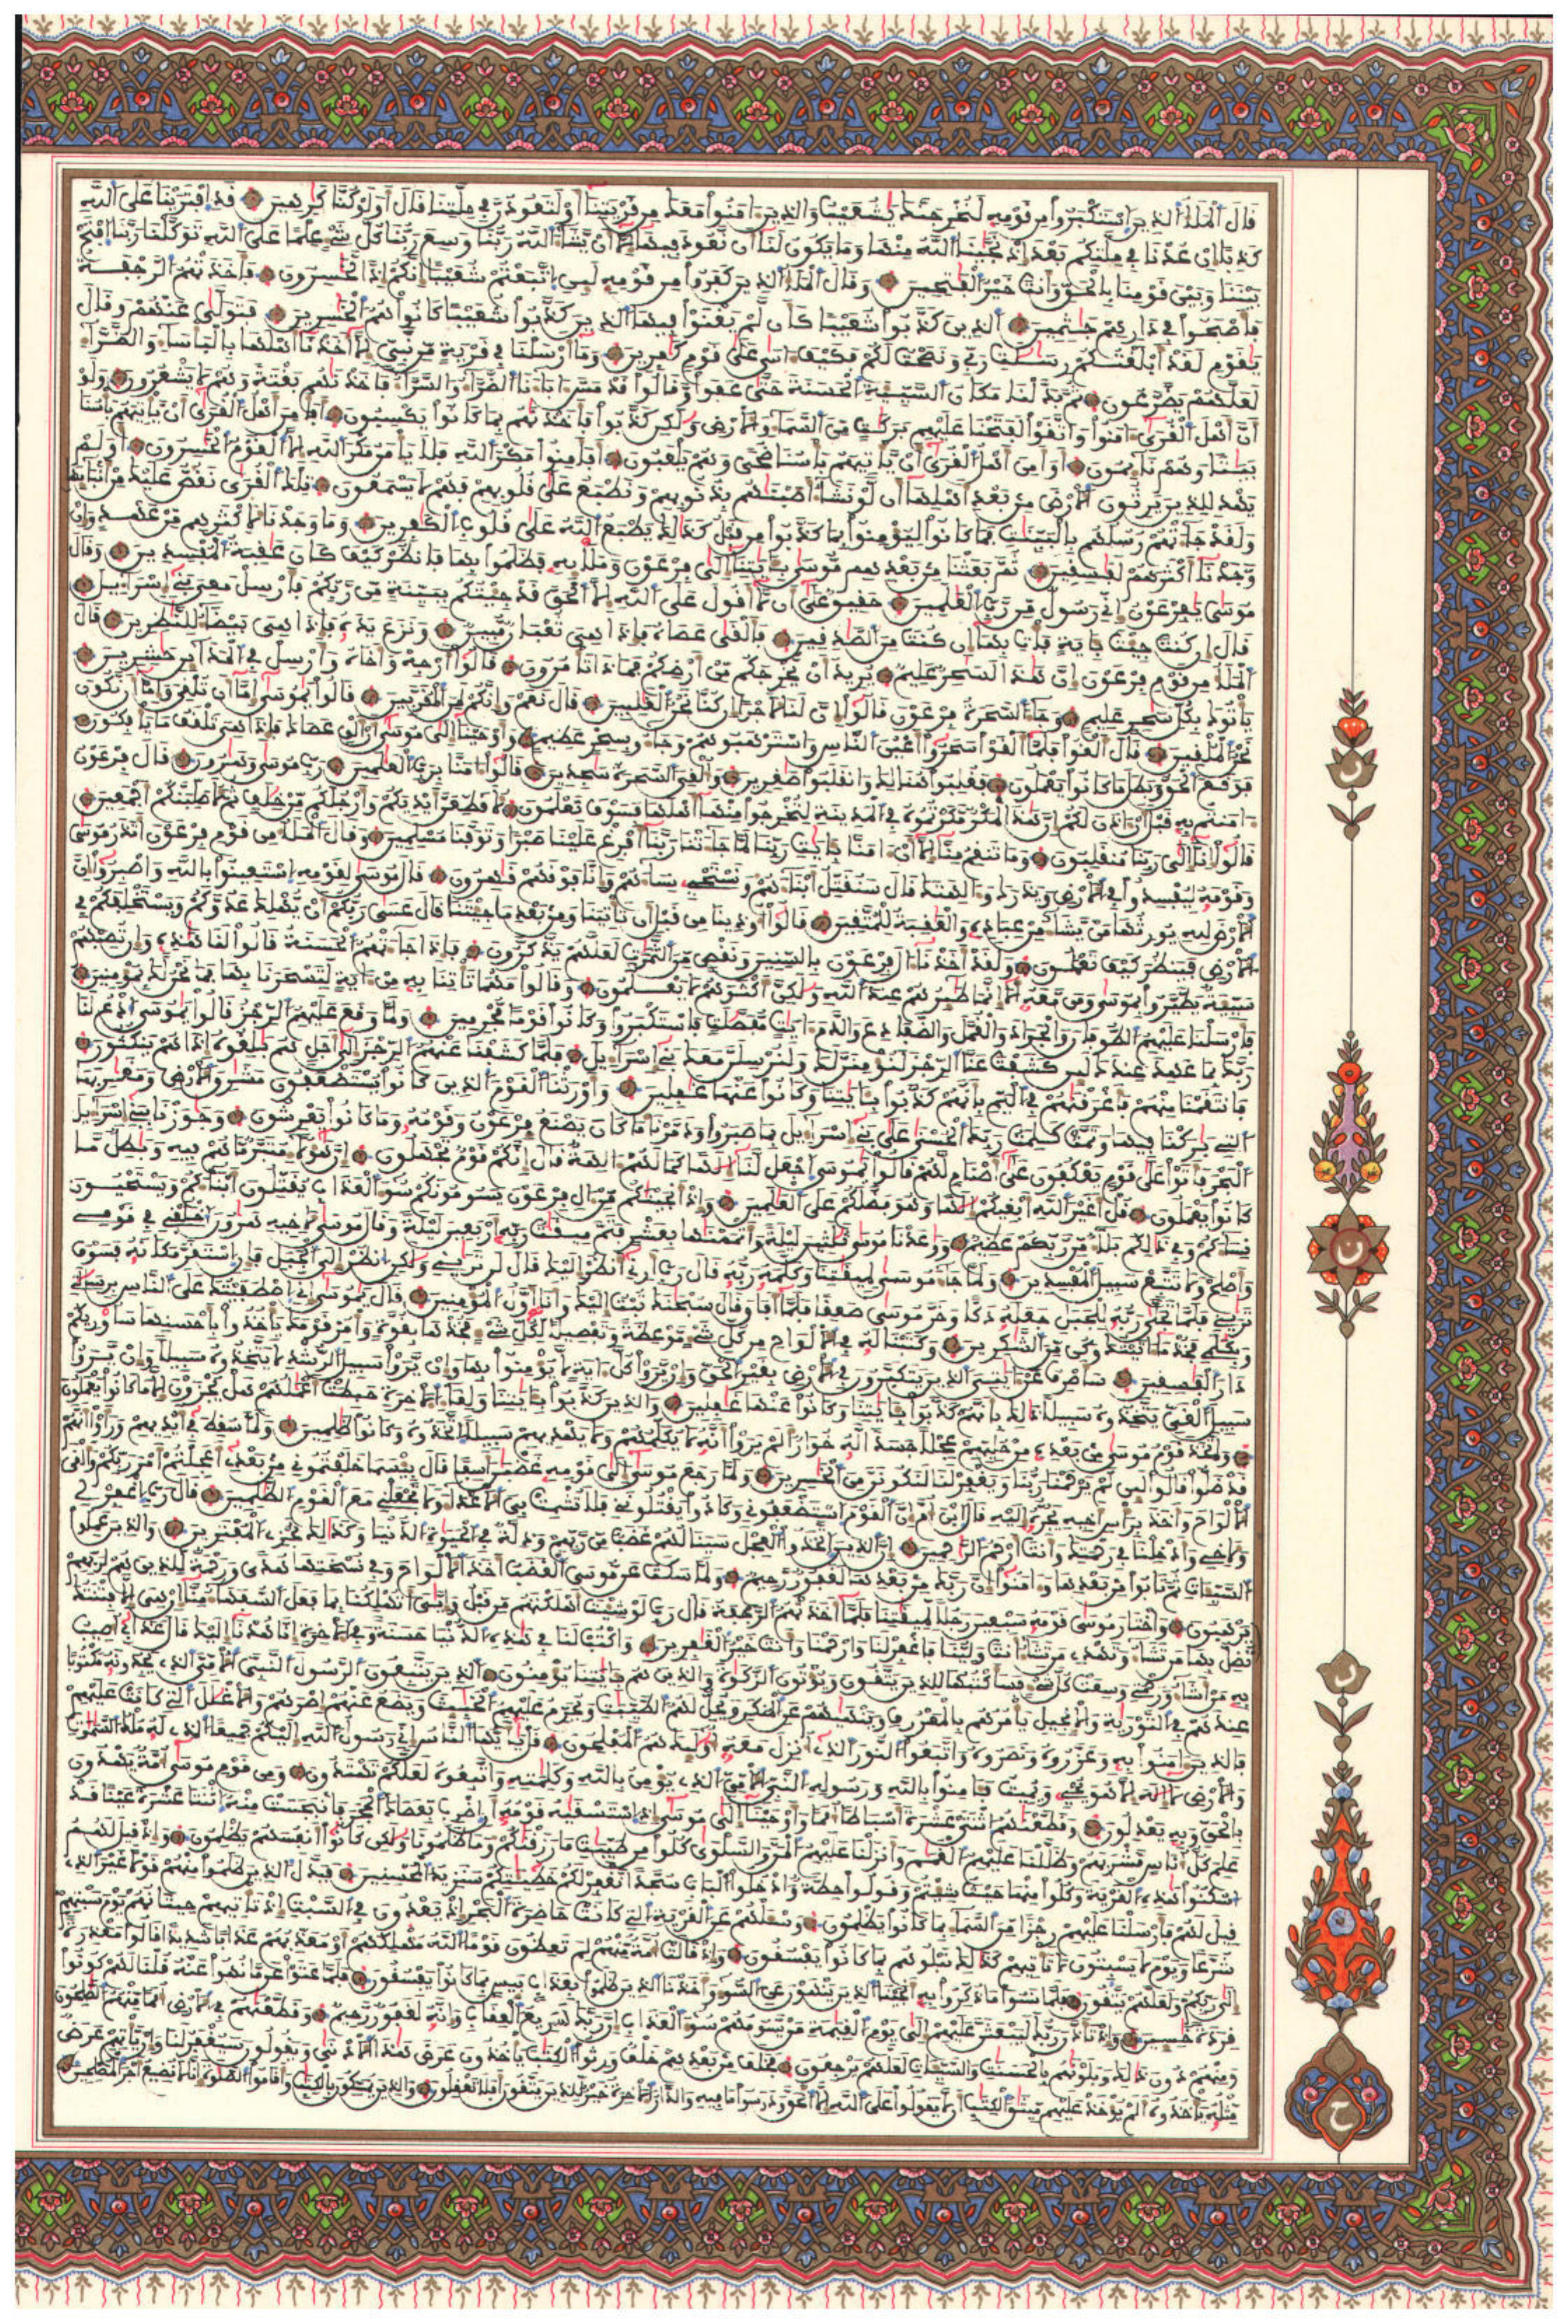 قال الملأ الذين استكبروا من قومه لنخرجنك يشعيب والذين ءامنوا معك من قريتنا أو لتعودن في ملتنا قال أولو كنا كرهين قد افترينا على الله
كذبا ان عدنا في ملتكم بعد إذ نجينا الله منها وما يكون لنا أن نعود فيها إلا أن يشاء الله ربنا وسع ربنا كل شيء علما على الله توكلنا ربنا افتح
بيننا وبين قومنا بالحق وأنت خير الفتحين وقال الملأ الذين كفروا من قومه لئن اتبعتم شعيبا انكم إذا لخسرون فأخذتهم الرجفة
فأصبحوا في دارهم جثمين الذين كذبوا شعيبا كأن لم يغنوا فيها الذين كذبوا شعيبا كانوا هم الخسرين فتولى عنهم وقال
يقوم لقد ابلغتكم رسلت ربي ونصحت لكم فكيف ءاسى على قوم كفرين وما أرسلنا في قرية من نبيء الا أخذنا أهلها بالبأساء والضراء
لعلهم يضرعون ثم بدلنا مكان السيئة الحسنة حتى عفوا وقالوا قد مس ءاباءنا الضراء والسراء فأخذنهم بغتة وهم لا يشعرون ولو
أن أهل القرى ءامنوا واتقوا لفتحنا عليهم بركت من السماء والأرض ولكن كذبوا فأخذنهم بما كانوا يكسبون أفأمن أهل القرى أن يأتيهم بأسنا
بيتا وهم نايمون أو امن أهل القرى أن يأتيهم بأسنا ضحى وهم يلعبون أفأمنوا مكر الله فلا يأمن مكر الله إلا القوم الخسرون أولم
يهد للذين يرثون الأرض من بعد أهلها أن لو نشاء اصبنهم بذنوبهم ونطبع على قلوبهم فهم لا يسمعون تلك القرى نقص عليك من انبائها
ولقد جاءتهم رسلهم بالبينت فما كانوا ليومنوا بما كذبوا من قبل كذلك يطبع الله على قلوب الكفرين وما وجدنا لأكثرهم من عهد وإن
وجدنا أكثرهم لفسقين ثم بعثنا من بعدهم موسى بئايتنا إلى فرعون وملإيه فظلموا بها فانظر كيف كان عقبة المفسدين وقال
موسى يفرعون إني رسول من رب العلمين حقيق علي أن لا أقول على الله إلا الحق قد جئتكم ببينة من ربكم فأرسل معي بني إسرائيل
قال إن كنت جئت بئاية فات بها إن كنت من الصدقين فألقى عصاه فإذا هي ثعبان مبين ونزع يده فإذا هي بيضاء للنظرين قال
الملأ من قوم فرعون إن هذا لسحر عليم يريد أن يخرجكم من أرضكم فماذا تامرون قالوا أرجه وأخاه وأرسل في المدائن حشرين
ياتوك بكل سحر عليم وجاء السحرة فرعون قالوا إن لنا لأجرا إن كنا نحن الغلبين قال نعم وإنكم لمن المقربين قالوا يموسى إما أن تلقي وإما أن نكون
نحن الملقين قال ألقوا فلما ألقوا سحروا أعين الناس واسترهبوهم وجاءو بسحر عظيم وأوحينا إلى موسى أن الق عصاك فإذا هي تلقف ما يافكون
فوقع الحق وبطل ما كانوا يعملون فغلبوا هنالك وانقلبوا صغرين وألقي السحرة سجدين قالوا ءامنا برب العلمين رب موسى وهرون قال فرعون
ءامنتم به قبل أن ءاذن لكم إن هذا لمكر مكرتموه في المدينة لتخرجوا منها أهلها فسوف تعلمون لأقطعن أيديكم وأرجلكم من خلف ثم لأصلبنكم أجمعين
قالوا إنا إلى ربنا منقلبون وما تنقم منا إلا أن ءامنا بئايت ربنا لما جاءتنا ربنا أفرغ علينا صبرا وتوفنا مسلمين وقال الملأ من قوم فرعون أتذر موسى
وقومه ليفسدوا في الأرض ويذرك وءالهتك قال سنقتل أبناءهم ونستحي نساءهم وإنا فوقهم قهرون قال موسى لقومه استعينوا بالله واصبروا إن
الأرض لله يورثها من يشاء من عباده والعقبة للمتقين قالوا أوذينا من قبل أن تاتينا ومن بعد ما جئتنا قال عسى ربكم أن يهلك عدوكم ويستخلفكم في
الأرض فينظر كيف تعملون ولقد أخذنا ءال فرعون بالسنين ونقص من الثمرت لعلهم يذكرون فإذا جاءتهم الحسنة قالوا لنا هذه وإن تصبهم
سيئة يطيروا بموسى ومن معه ألا إنما طئرهم عند الله ولكن أكثرهم لا يعلمون وقالوا مهما تاتنا به من ءاية لتسحرنا بها فما نحن لك بمومنين
فأرسلنا عليهم الطوفان والجراد والقمل والضفادع والدم ءايت مفصلت فاستكبروا وكانوا قوما مجرمين ولما وقع عليهم الرجز قالوا يموسى ادع لنا
ربك بما عهد عندك لئن كشفت عنا الرجز لنومنن لك ولنرسلن معك بني إسرائيل فلما كشفنا عنهم الرجز إلى أجل هم بلغوه إذا هم ينكثون
فانتقمنا منهم فأغرقنهم في اليم بأنهم كذبوا بئايتنا وكانوا عنها غفلين وأورثنا القوم الذين كانوا يستضعفون مشرق الأرض ومغربها
التي بركنا فيها وتمت كلمت ربك الحسنى على بني إسرائيل بما صبروا ودمرنا ما كان يصنع فرعون وقومه وما كانوا يعرشون وجوزنا ببني إسرائيل
البحر فأتوا على قوم يعكفون على أصنام لهم قالوا يموسى اجعل لنا إلها كما لهم ءالهة قال إنكم قوم تجهلون إن هؤلاء متبر ما هم فيه وبطل ما
كانوا يعملون قال أغير الله أبغيكم إلها وهو فضلكم على العلمين وإذ أنجينكم من ءال فرعون يسومونكم سوء العذاب يقتلون أبناءكم ويستحيون
نساءكم وفي ذلكم بلاء من ربكم عظيم ووعدنا موسى ثلثين ليلة وأتممنها بعشر فتم ميقت ربه أربعين ليلة وقال موسى لأخيه هرون اخلفني في قومي
وأصلح ولا تتبع سبيل المفسدين ولما جاء موسى لميقتنا وكلمه ربه قال رب أرني أنظر إليك قال لن تريني ولكن انظر إلى الجبل فإن استقر مكانه فسوف
تريني فلما تجلى ربه للجبل جعله دكا وخر موسى صعقا فلما أفاق قال سبحنك تبت إليك وأنا أول المومنين قال يموسى إني اصطفيتك على الناس برسلتي
وبكلمي فخذ ما ءاتيتك وكن من الشكرين وكتبنا له في الألواح من كل شيء موعظة وتفصيلا لكل شيء فخذها بقوة وامر قومك ياخذوا بأحسنها سأوريكم
دار الفسقين سأصرف عن ءايتي الذين يتكبرون في الأرض بغير الحق وإن يروا كل ءاية لا يومنوا بها وإن يروا سبيل الرشد لا يتخذوه سبيلا وإن يروا
سبيل الغي يتخذوه سبيلا ذلك بأنهم كذبوا بئايتنا وكانوا عنها غفلين والذين كذبوا بئايتنا ولقاء الآخرة حبطت أعملهم هل يجزون إلا ما كانوا يعملون
واتخذ قوم موسى من بعده من حليهم عجلا جسدا له خوار ألم يروا أنه لا يكلمهم ولا يهديهم سبيلا اتخذوه وكانوا ظلمين ولما سقط في أيديهم ورأوا أنهم
قد ضلوا قالوا لئن لم يرحمنا ربنا ويغفر لنا لنكونن من الخسرين ولما رجع موسى إلى قومه غضبن أسفا قال بئسما خلفتموني من بعدي أعجلتم أمر ربكم وألقى
الألواح وأخذ برأس أخيه يجره إليه قال ابن أم إن القوم استضعفوني وكادوا يقتلونني فلا تشمت بي الأعداء ولا تجعلني مع القوم الظلمين قال رب اغفر لي
ولأخي وأدخلنا في رحمتك وأنت أرحم الرحمين إن الذين اتخذوا العجل سينالهم غضب من ربهم وذلة في الحيوة الدنيا وكذلك نجزي المفترين والذين عملوا
السيئات ثم تابوا من بعدها وءامنوا إن ربك من بعدها لغفور رحيم ولما سكت عن موسى الغضب أخذ الألواح وفي نسختها هدى ورحمة للذين هم لربهم
يرهبون واختار موسى قومه سبعين رجلا لميقتنا فلما أخذتهم الرجفة قال رب لو شئت أهلكتهم من قبل وإيي أتهلكنا بما فعل السفهاء منا إن هي إلا فتنتك
تضل بها من تشاء وتهدي من تشاء أنت ولينا فاغفر لنا وارحمنا وأنت خير الغفرين واكتب لنا في هذه الدنيا حسنة وفي الآخرة إنا هدنا إليك قال عذابي أصيب
به من أشاء ورحمتي وسعت كل شيء فسأكتبها للذين يتقون ويوتون الزكوة والذين هم بئايتنا يومنون الذين يتبعون الرسول النبيء الأمي الذي يجدونه مكتوبا
عندهم في التورية والإنجيل يامرهم بالمعروف وينهيهم عن المنكر ويحل لهم الطيبت ويحرم عليهم الخبئث ويضع عنهم إصرهم والأغلل التي كانت عليهم
فالذين ءامنوا به وعزروه ونصروه واتبعوا النور الذي أنزل معه أولئك هم المفلحون قل يأيها الناس إني رسول الله إليكم جميعا الذي له ملك السموت
والأرض لا إله إلا هو يحي ويميت فئامنوا بالله ورسوله النبيء الأمي الذي يومن بالله وكلمته واتبعوه لعلكم تهتدون ومن قوم موسى أمة يهدون
بالحق وبه يعدلون وقطعنهم اثنتي عشرة أسباطا أمما وأوحينا إلى موسى إذ استسقيه قومه أن اضرب بعصاك الحجر فانبجست منه اثنتا عشرة عينا قد
علم كل أناس مشربهم وظللنا عليهم الغمم وأنزلنا عليهم المن والسلوى كلوا من طيبت ما رزقنكم وما ظلمونا ولكن كانوا أنفسهم يظلمون وإذ قيل لهم
اسكنوا هذه القرية وكلوا منها حيث شئتم وقولوا حطة وادخلوا الباب سجدا تغفر لكم خطيئتكم سنزيد المحسنين فبدل الذين ظلموا منهم قولا غير الذي
قيل لهم فأرسلنا عليهم رجزا من السماء بما كانوا يظلمون وسئلهم عن القرية التي كانت حاضرة البحر إذ يعدون في السبت إذ تاتيهم حيتانهم يوم سبتهم
شرعا ويوم لا يسبتون لا تاتيهم كذلك نبلوهم بما كانوا يفسقون وإذ قالت أمة منهم لم تعظون قوما الله مهلكهم أو معذبهم عذابا شديدا قالوا معذرة
إلى ربكم ولعلهم يتقون فلما نسوا ما ذكروا به أنجينا الذين ينهون عن السوء وأخذنا الذين ظلموا بعذاب بيس بما كانوا يفسقون فلما عتوا عن ما نهوا عنه قلنا لهم كونوا
قردة خسئين وإذ تأذن ربك ليبعثن عليهم إلى يوم القيمة من يسومهم سوء العذاب إن ربك لسريع العقاب وإنه لغفور رحيم وقطعنهم في الأرض أمما منهم الصلحون
ومنهم دون ذلك وبلونهم بالحسنت والسيئات لعلهم يرجعون فخلف من بعدهم خلف ورثوا الكتب ياخذون عرض هذا الأدنى ويقولون سيغفر لنا وإن ياتهم عرض
مثله ياخذوه ألم يوخذ عليهم ميثق الكتب أن لا يقولوا على الله إلا الحق ودرسوا ما فيه والدار الآخرة خير للذين يتقون أفلا تعقلون والذين يمسكون بالكتب وأقاموا الصلوة إنا لا نضيع أجر المصلحين
ن
ن
ن
ح